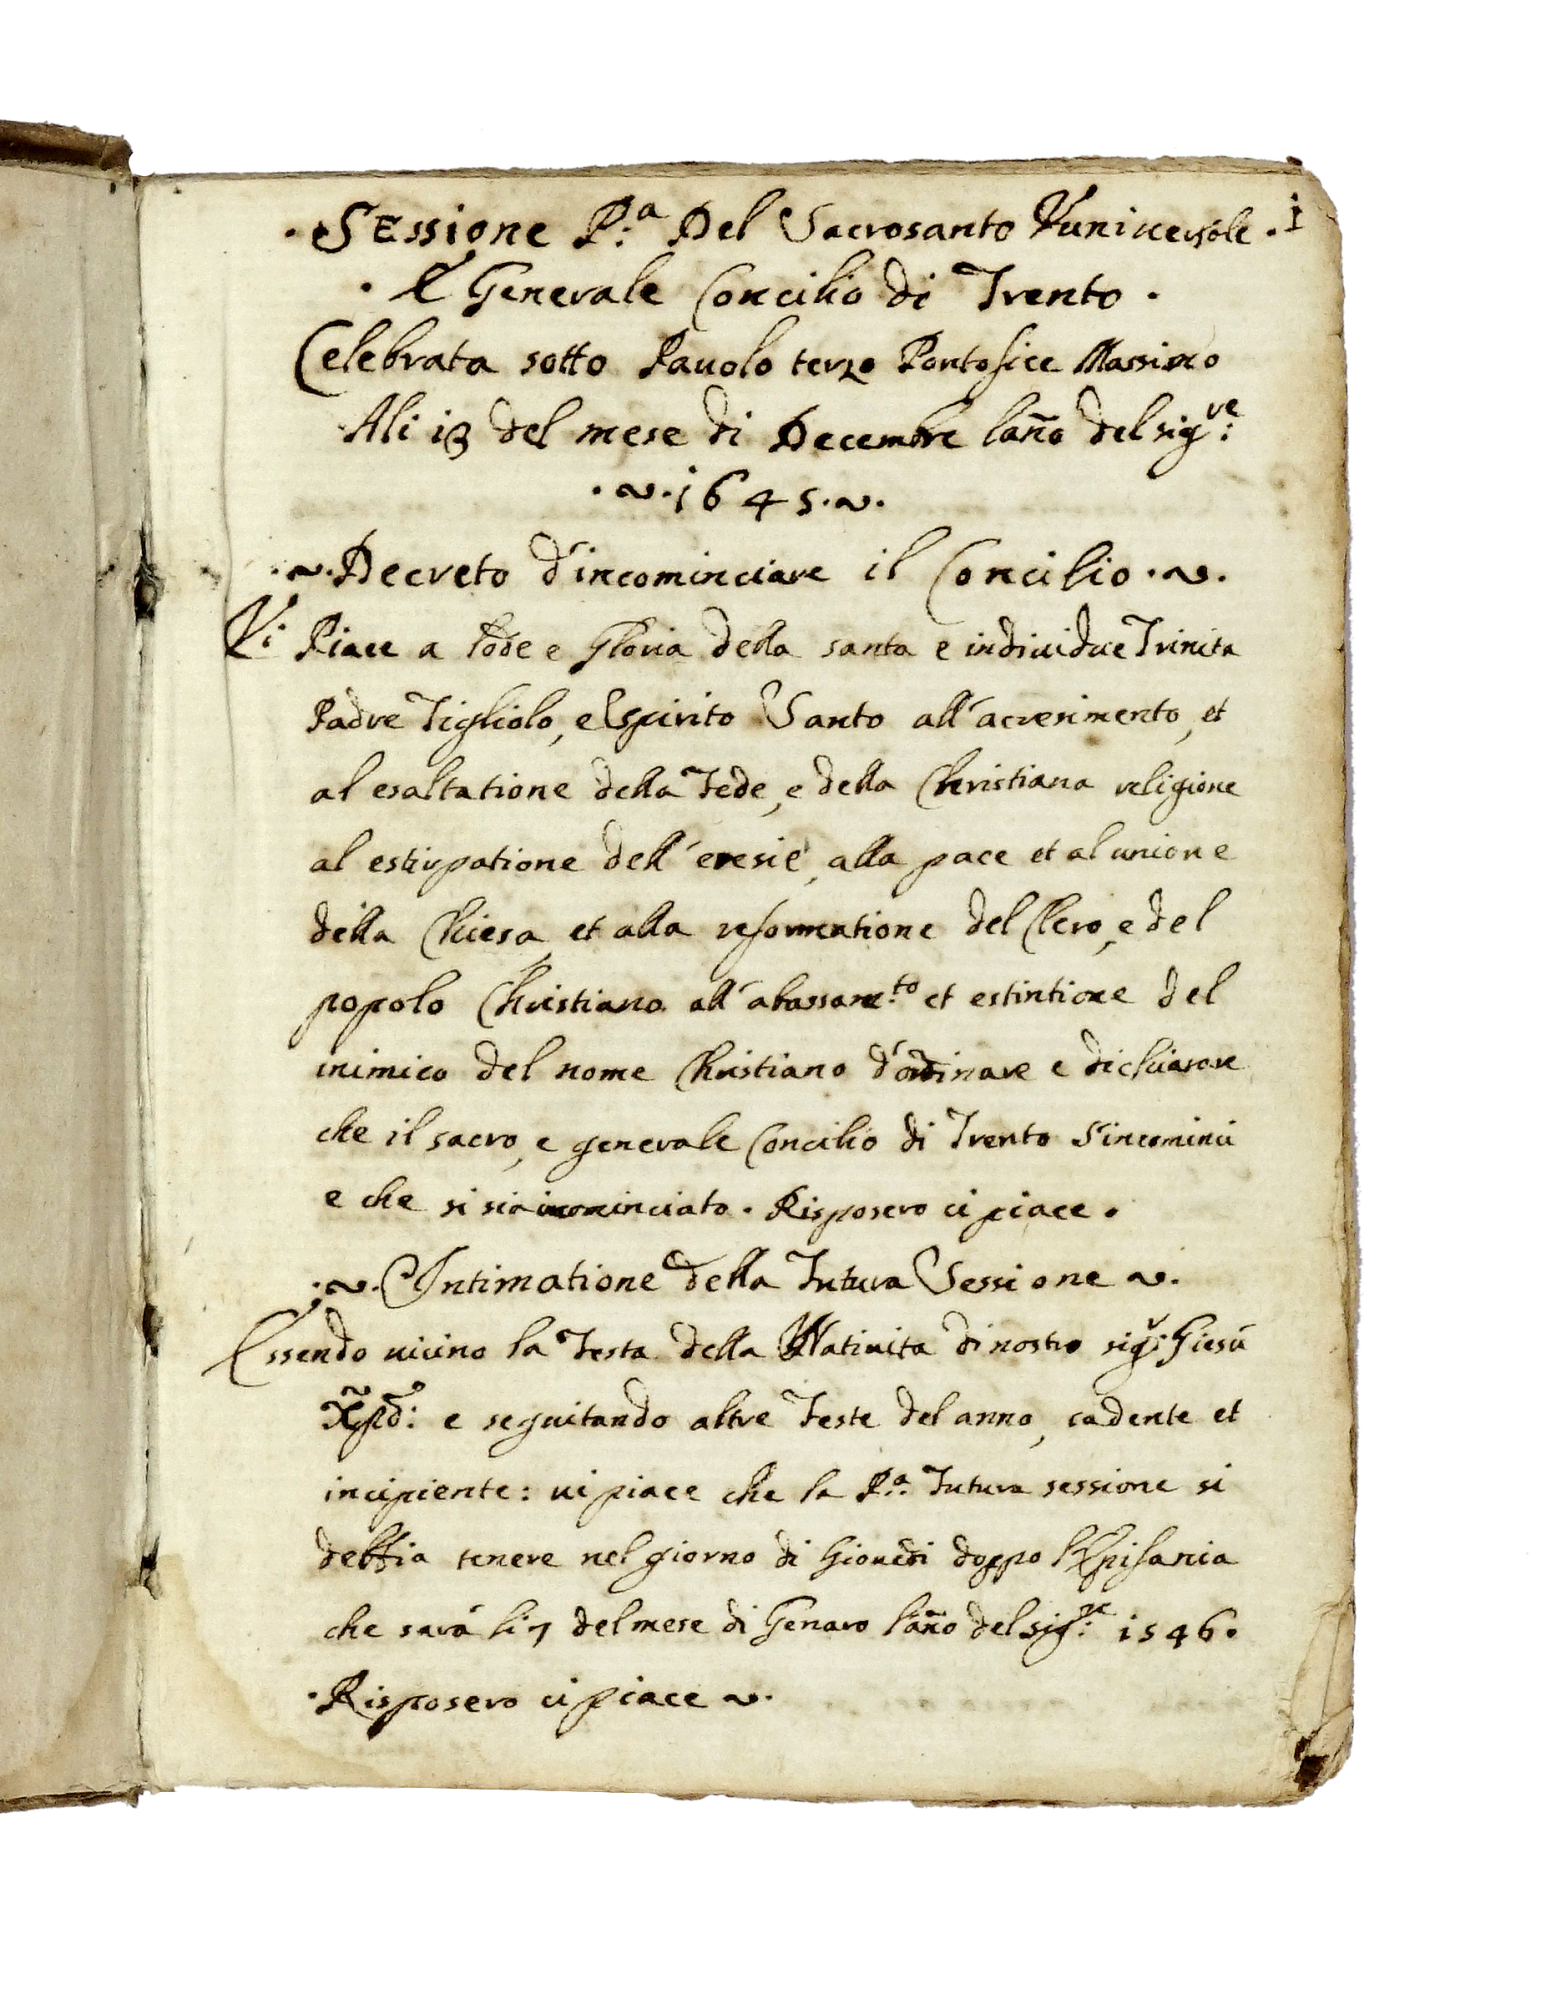 . Sessione P.ª Del Sacrosanto Vuniversale . 1
. E Generale Concilio di Trento .
Celebrata sotto Pauolo terzo Pontofice Massimo
Ali 13 del mese di Decembre l'año del sig:re
. ~ . 1645 . ~ .
. ~ . Decreto d'incominciare il Concilio . ~ .
Vi Piace a lode e Gloria della santa e indiuidue Trinita
Padre Figliolo, e Spirito Santo all'acresimento, et
al esaltatione della Fede, e della Christiana religione
al estirpatione dell'eresie, alla pace et al unione
della Chiesa, et alla reformatione del Clero, e del
popolo Christiano all'abassame:to et estintione del
inimico del nome Christiano d'ordinare e dichiarare
che il sacro, e generale Concilio di Trento s'incominci
e che si sia incominciato . Risposero ci piace .
; ~ . Intimatione della Futura Sessione ~ .
Essendo uicino la Festa della Natiuita di nostro sig:r Giesù
Xp̃o: e seguitando altre Feste del anno, cadente et
incipiente: ui piace che la P.ª Futura sessione si
debbia tenere nel giorno di Giouedi doppo l'Epifania
che sarà li 7 del mese di Genaro l'año del sig:re 1546 .
. Risposero ci piace ~ .